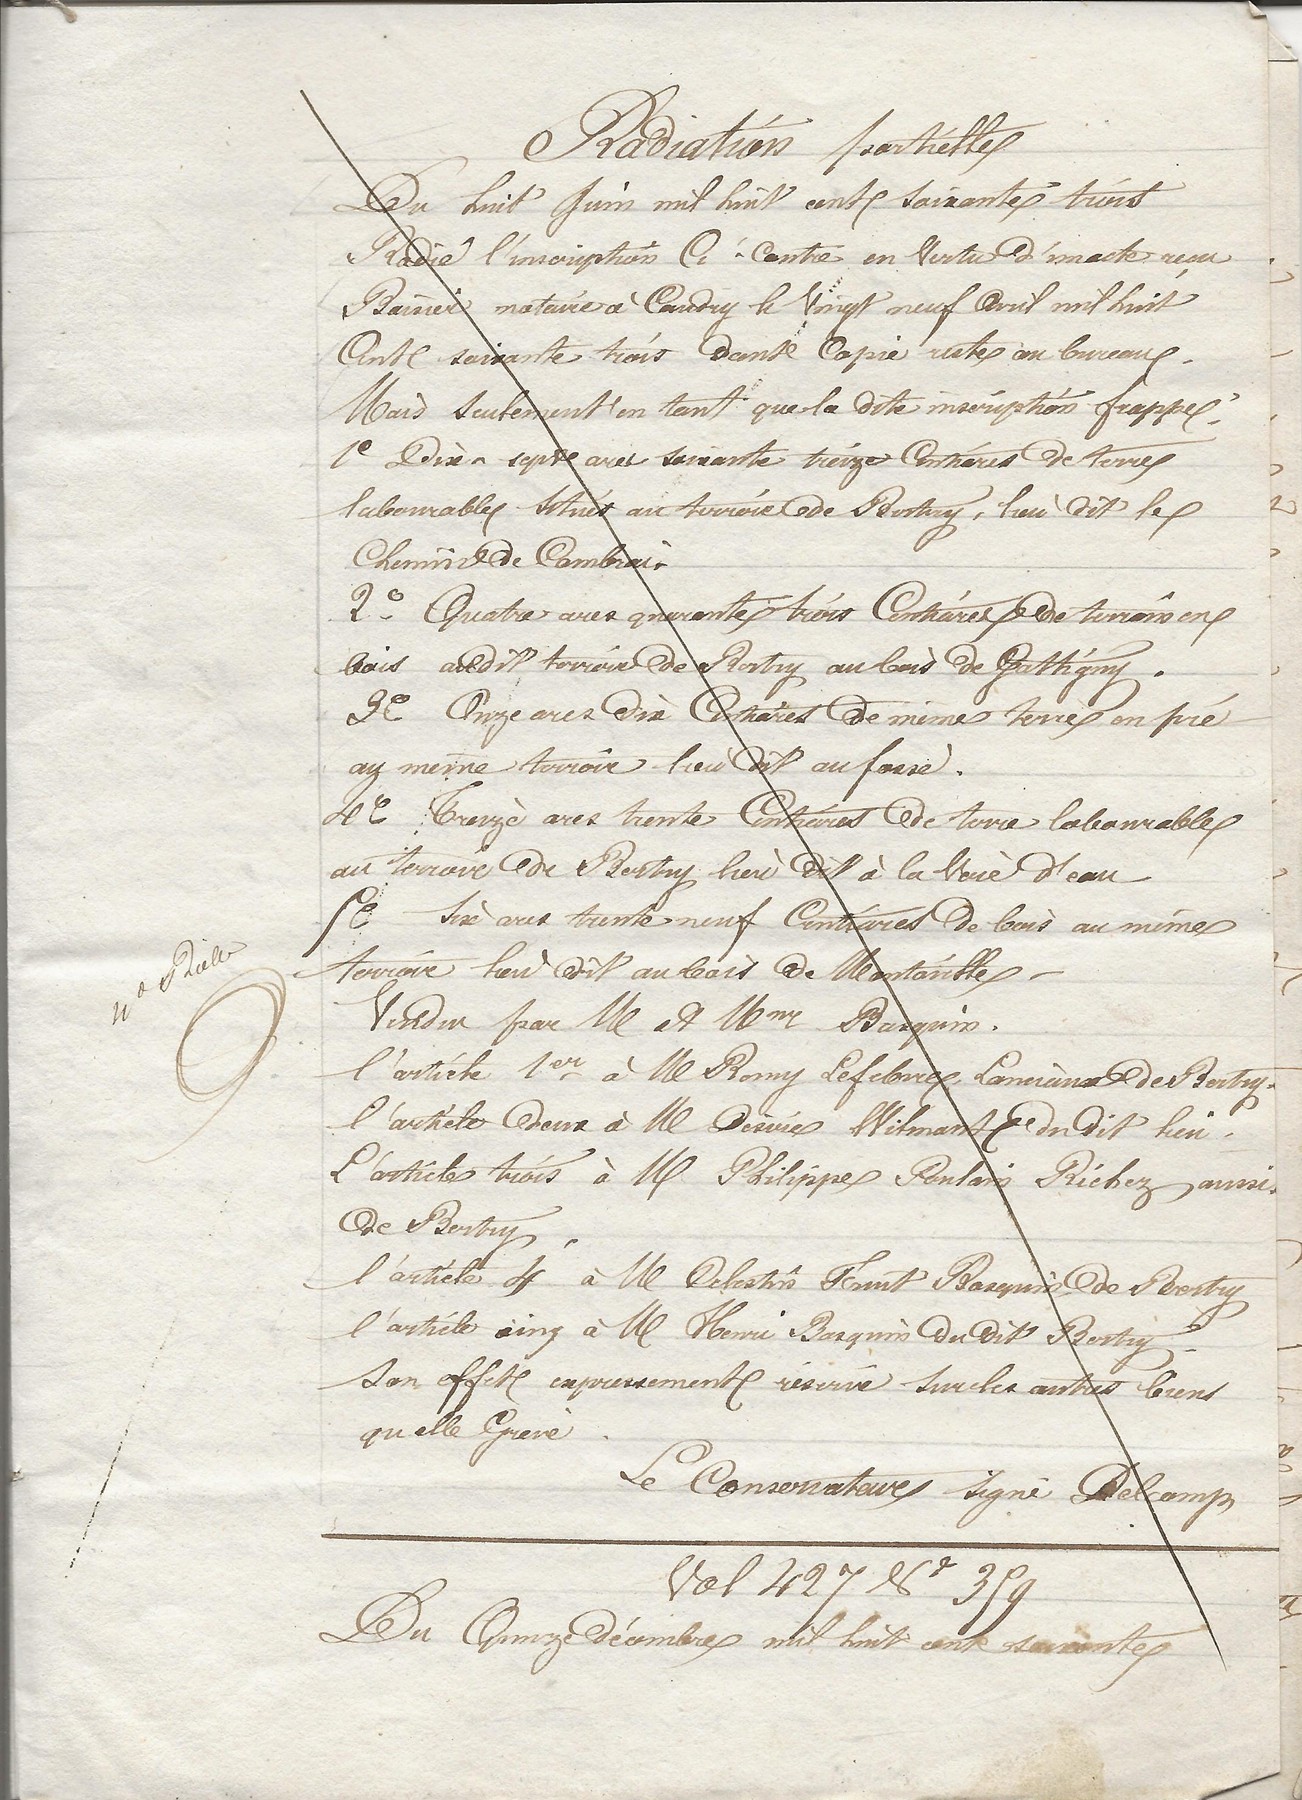 Radiation partielle
Du huit Juin mil huit cent soixante trois
Radié l'inscription Ci-Contre en Vertu d'un acte reçu
notaire à Caudry le Vingt neuf avril mil huit
Cent soixante trois dont Copie reste au bureau.
Mais seulement en tant que la dite inscription frappe.
1º Dix-sept ares soixante treize Centiares de terre
labourable situés au terroir de Bertry, lieu dit le
Chemin de Cambrai.
2º Quatre ares quarante trois Centiares de terrain en
bois audit terroir de Bertry au bois de Gattigny.
3º Onze ares dix Centiares de même terre en pré
au même terroir lieu dit au fossé.
4º Treize ares trente Centiares de terre labourable
au terroir de Bertry lieu dit à la Voie d'eau
5º Six ares trente neuf Centiares de bois au même
terroir lieu dit au bois de
Vendu par M et Mme Basquin.
l'article 1er à M Romy Lefebvre Lanciaux de Bertry.
l'article deux à M Désiré Wilmant du dit lieu.
L'article trois à M Philippe Poulain Richez aussi
de Bertry.
l'article 4 à M Celestin Basquin de Bertry
l'article cinq à M Henri Basquin du dit Bertry
Son effet expressement réservé sur les autres biens
qu'elle Grève.
Le Conservateur signé Delcamp
Vol 427 Nº 359
Du Quinze décembre mil huit cent soixante